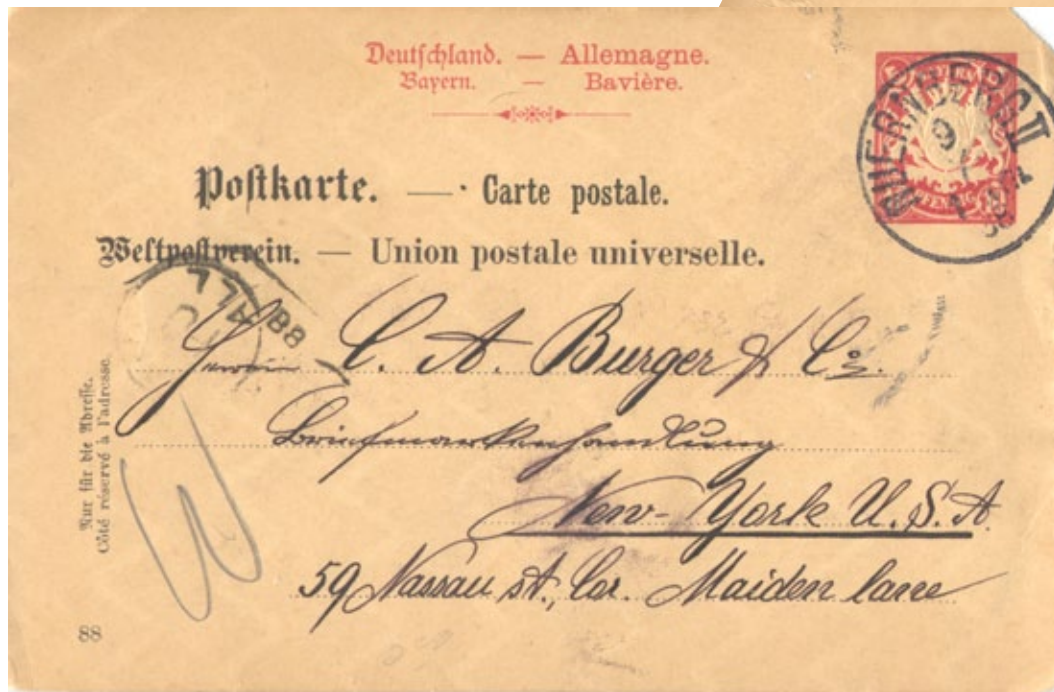 Deutschland. — Allemagne.
Bayern. — Bavière.
NUERNBERG II
9
88
PFENNIG
Postkarte. — Carte postale.
Weltpostverein. — Union postale universelle.
88
Herren C. A. Burger & Co.
Briefmarkenhandlung
New-York U. S. A.
59 Nassau st., Cor. Maiden lane
Nur für die Adresse.
Côté réservé à l'adresse.
88